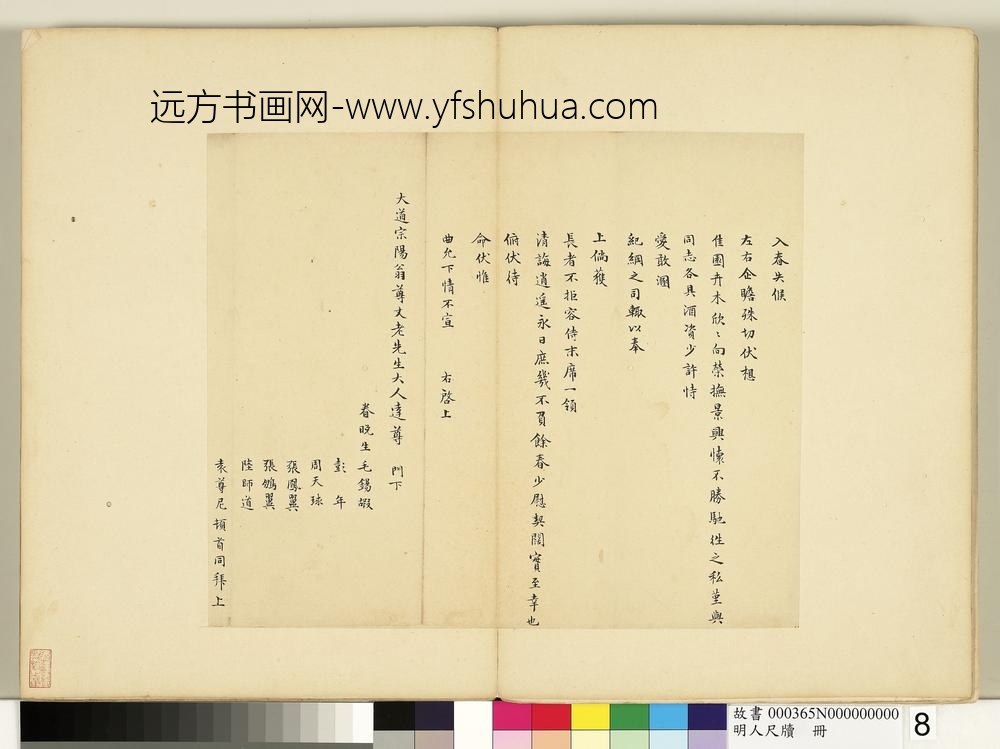 远方书画网-www.yfshuhua.com
入春失候
左右企瞻殊切伏想
佳園卉木欣〻向榮撫景興懷不勝馳徃之私堇與
同志各具酒資少許恃
愛敢溷
紀綱之司輙以奉
上倘獲
長者不拒容侍末席一領
清誨逍遥永日庶幾不負餘春少慰契闊實至幸也
俯伏待
命伏惟
曲允下情不宣 右啓上
大道宗陽翁尊丈老先生大人達尊 門下
眷晚生毛錫嘏
彭年
周天球
張鳳翼
張鵷翼
陸師道
袁尊尼頓首同拜上
故書 000365N000000000
明人尺牘 冊
8